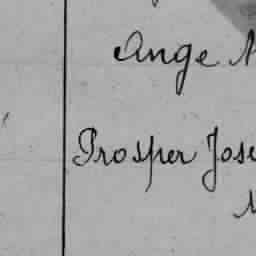 Ange
Prosper Jose